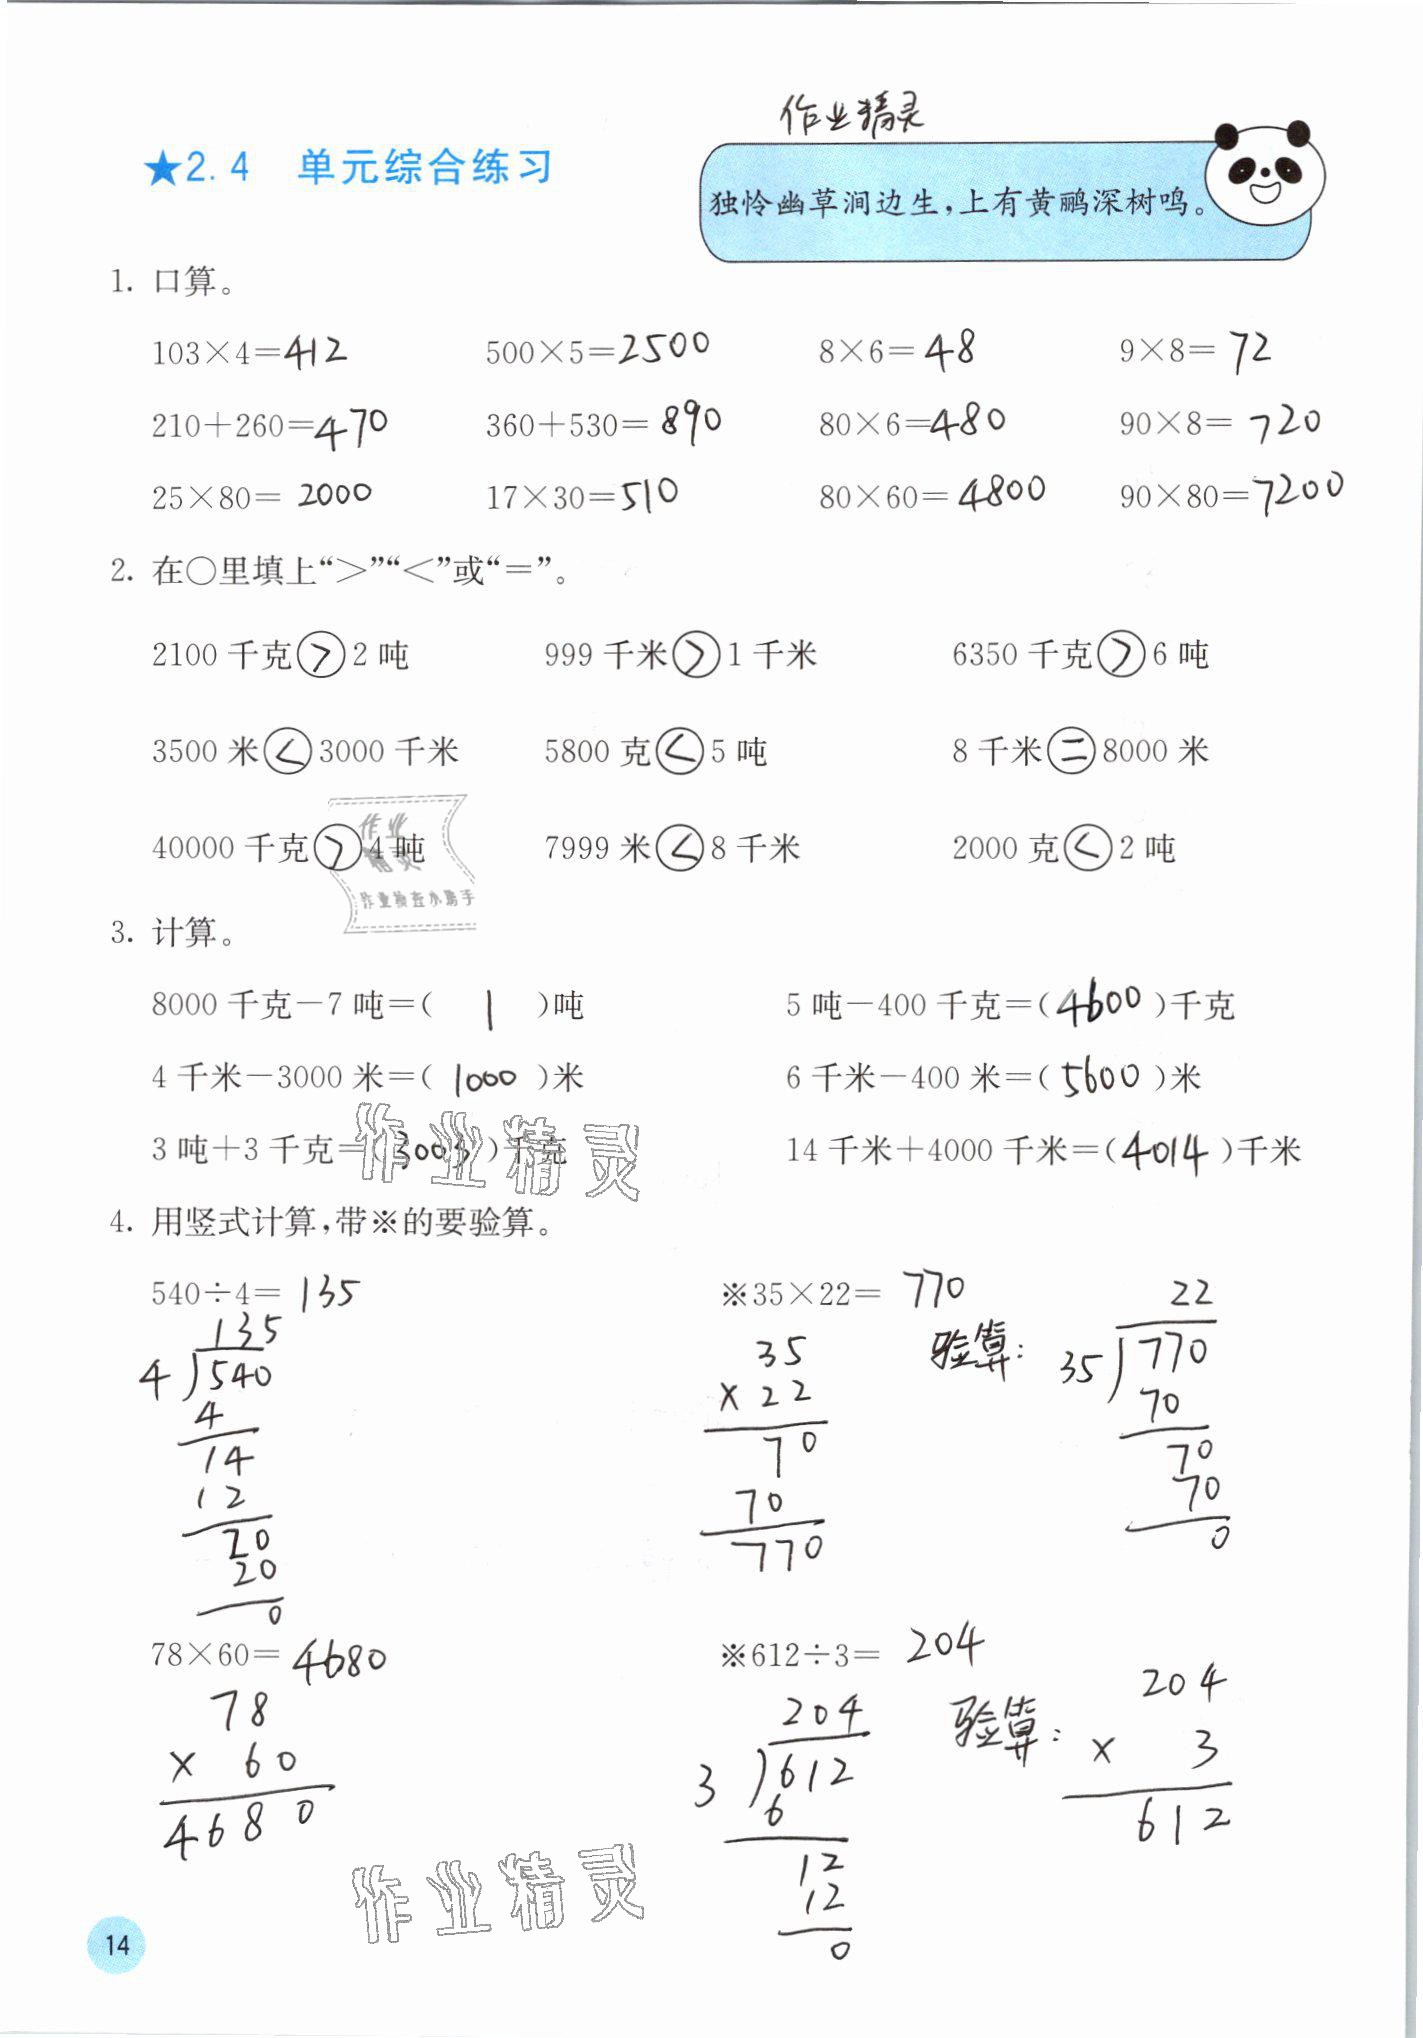 作业精灵
★2.4 单元综合练习
独怜幽草涧边生,上有黄鹂深树鸣。
1. 口算。
103×4=412 500×5=2500 8×6=48 9×8=72
210+260=470 360+530=890 80×6=480 90×8=720
25×80=2000 17×30=510 80×60=4800 90×80=7200
2. 在○里填上“>”“<”或“=”。
2100 千克>2 吨 999 千米>1 千米 6350 千克>6 吨
3500 米<3000 千米 5800 克<5 吨 8 千米=8000 米
40000 千克>4 吨 7999 米<8 千米 2000 克<2 吨
作业
精灵
作业检查小助手
3. 计算。
8000 千克-7 吨=( 1 )吨 5 吨-400 千克=(4600)千克
4 千米-3000 米=(1000)米 6 千米-400 米=(5600)米
3 吨+3 千克=(3003)千克 14 千米+4000 千米=(4014)千米
作业精灵
4. 用竖式计算,带※的要验算。
540÷4=135 ※35×22=770
135
4)540
4
14
12
20
20
0
35
×22
70
70
770
验算:
22
35)770
70
70
70
0
78×60=4680 ※612÷3=204
78
× 60
4680
204
3)612
6
12
12
0
验算:
204
× 3
612
作业精灵
14